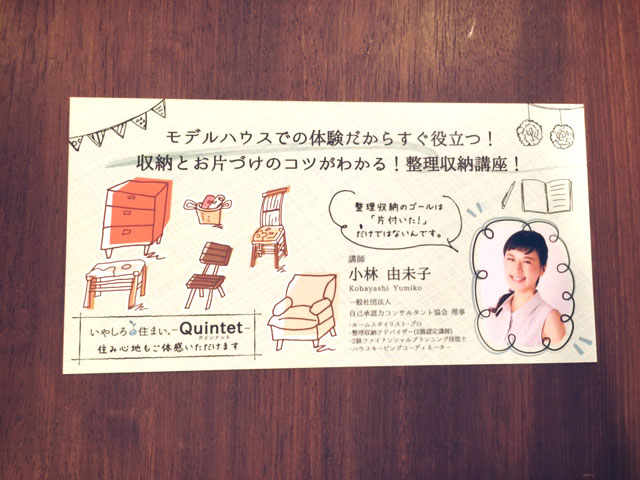 モデルハウスでの体験だからすぐ役立つ！
収納とお片づけのコツがわかる！整理収納講座！
整理収納のゴールは
「片付いた！」
だけではないんです。
講師
小林 由未子
Kobayashi Yumiko
一般社団法人
自己承認力コンサルタント協会 理事
・ルームスタイリスト・プロ
・整理収納アドバイザー(2級認定講師)
・2級ファイナンシャルプランニング技能士
・ハウスキーピングコーディネーター
いやしろの住まい。-Quintet-
クインテット
住み心地もご体感いただけます